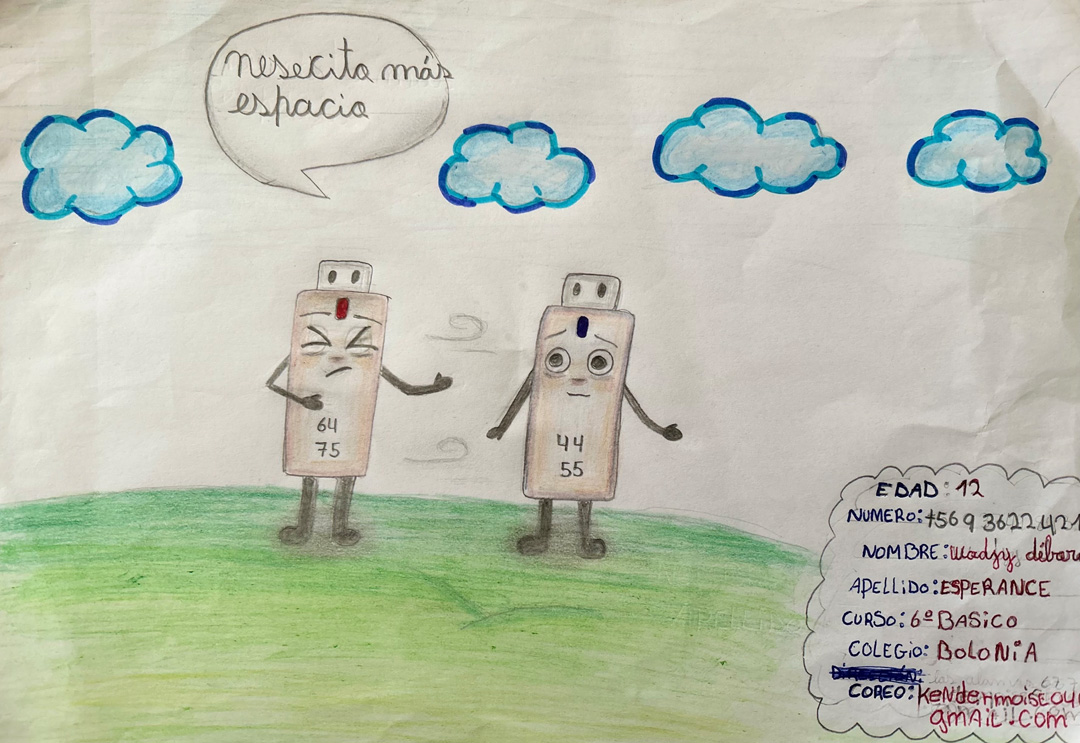 nesecito más
espacio
64
75
44
55
EDAD: 12
NUMERO: +56 9 3622 421
NOMBRE: wadjy, débara
APELLIDO: ESPERANCE
CURSO: 6º BASICO
COLEGIO: BOLONIA
DIRECCIÓN:
COREO: Kendermoise04
gmAil.com